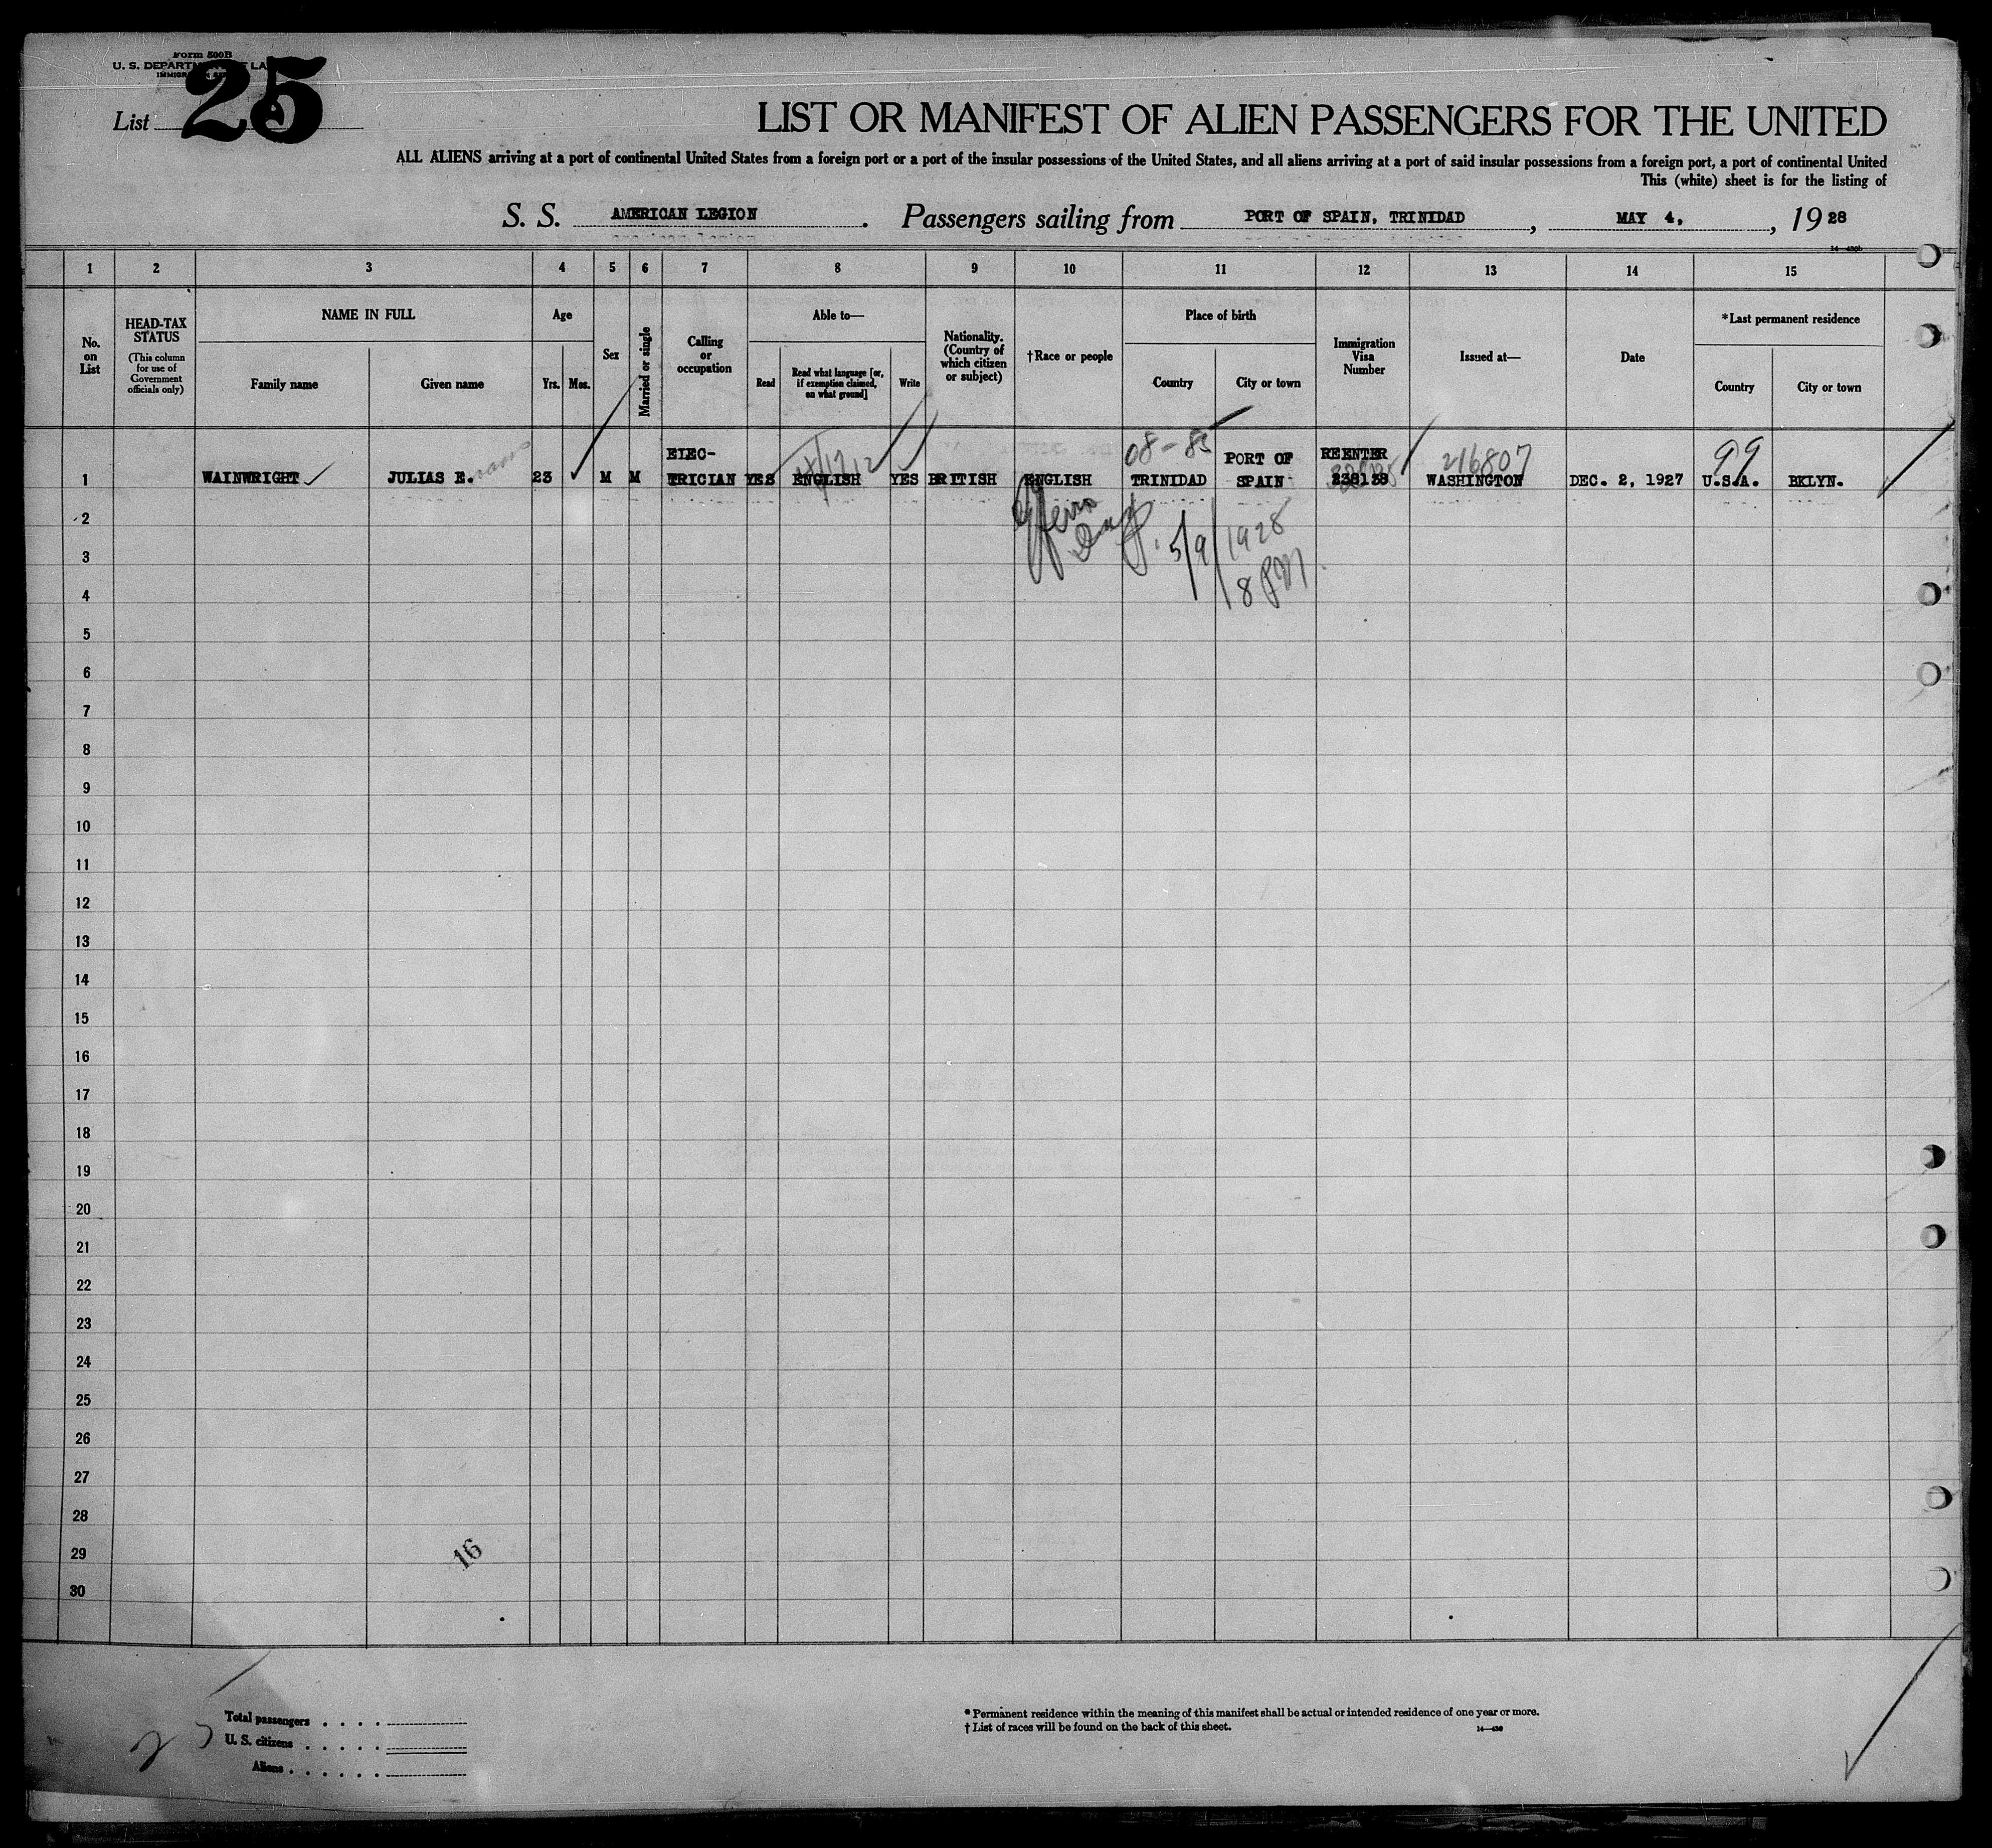 Form 500B
U. S. DEPARTMENT LA
List 25
LIST OR MANIFEST OF ALIEN PASSENGERS FOR THE UNITED
ALL ALIENS arriving at a port of continental United States from a foreign port or a port of the insular possessions of the United States, and all aliens arriving at a port of said insular possessions from a foreign port, a port of continental United
This (white) sheet is for the listing of
S. S. AMERICAN LEGION. Passengers sailing from PORT OF SPAIN, TRINIDAD, MAY 4, , 1928
1 2 3 4 5 6 7 8 9 10 11 12 13 14 15
No. on List
HEAD-TAX STATUS
(This column for use of Government officials only)
NAME IN FULL
Family name
Given name
Age
Yrs.
Mos.
Sex
Married or single
Calling or occupation
Able to—
Read
Read what language [or, if exemption claimed, on what ground]
Write
Nationality. (Country of which citizen or subject)
†Race or people
Place of birth
Country
City or town
Immigration Visa Number
Issued at—
Date
*Last permanent residence
Country
City or town
08-85
216807
99
1 WAINWRIGHT JULIAS E. 23 M M ELEC-TRICIAN YES ENGLISH YES BRITISH ENGLISH TRINIDAD PORT OF SPAIN REENTER WASHINGTON DEC. 2, 1927 U.S.A. BKLYN.
5/9/1928
8 PM
2
3
4
5
6
7
8
9
10
11
12
13
14
15
16
17
18
19
20
21
22
23
24
25
26
27
28
29
30
16
Total passengers . . . .
U. S. citizens . . . . .
Aliens . . . . . .
* Permanent residence within the meaning of this manifest shall be actual or intended residence of one year or more.
† List of races will be found on the back of this sheet.
14—430